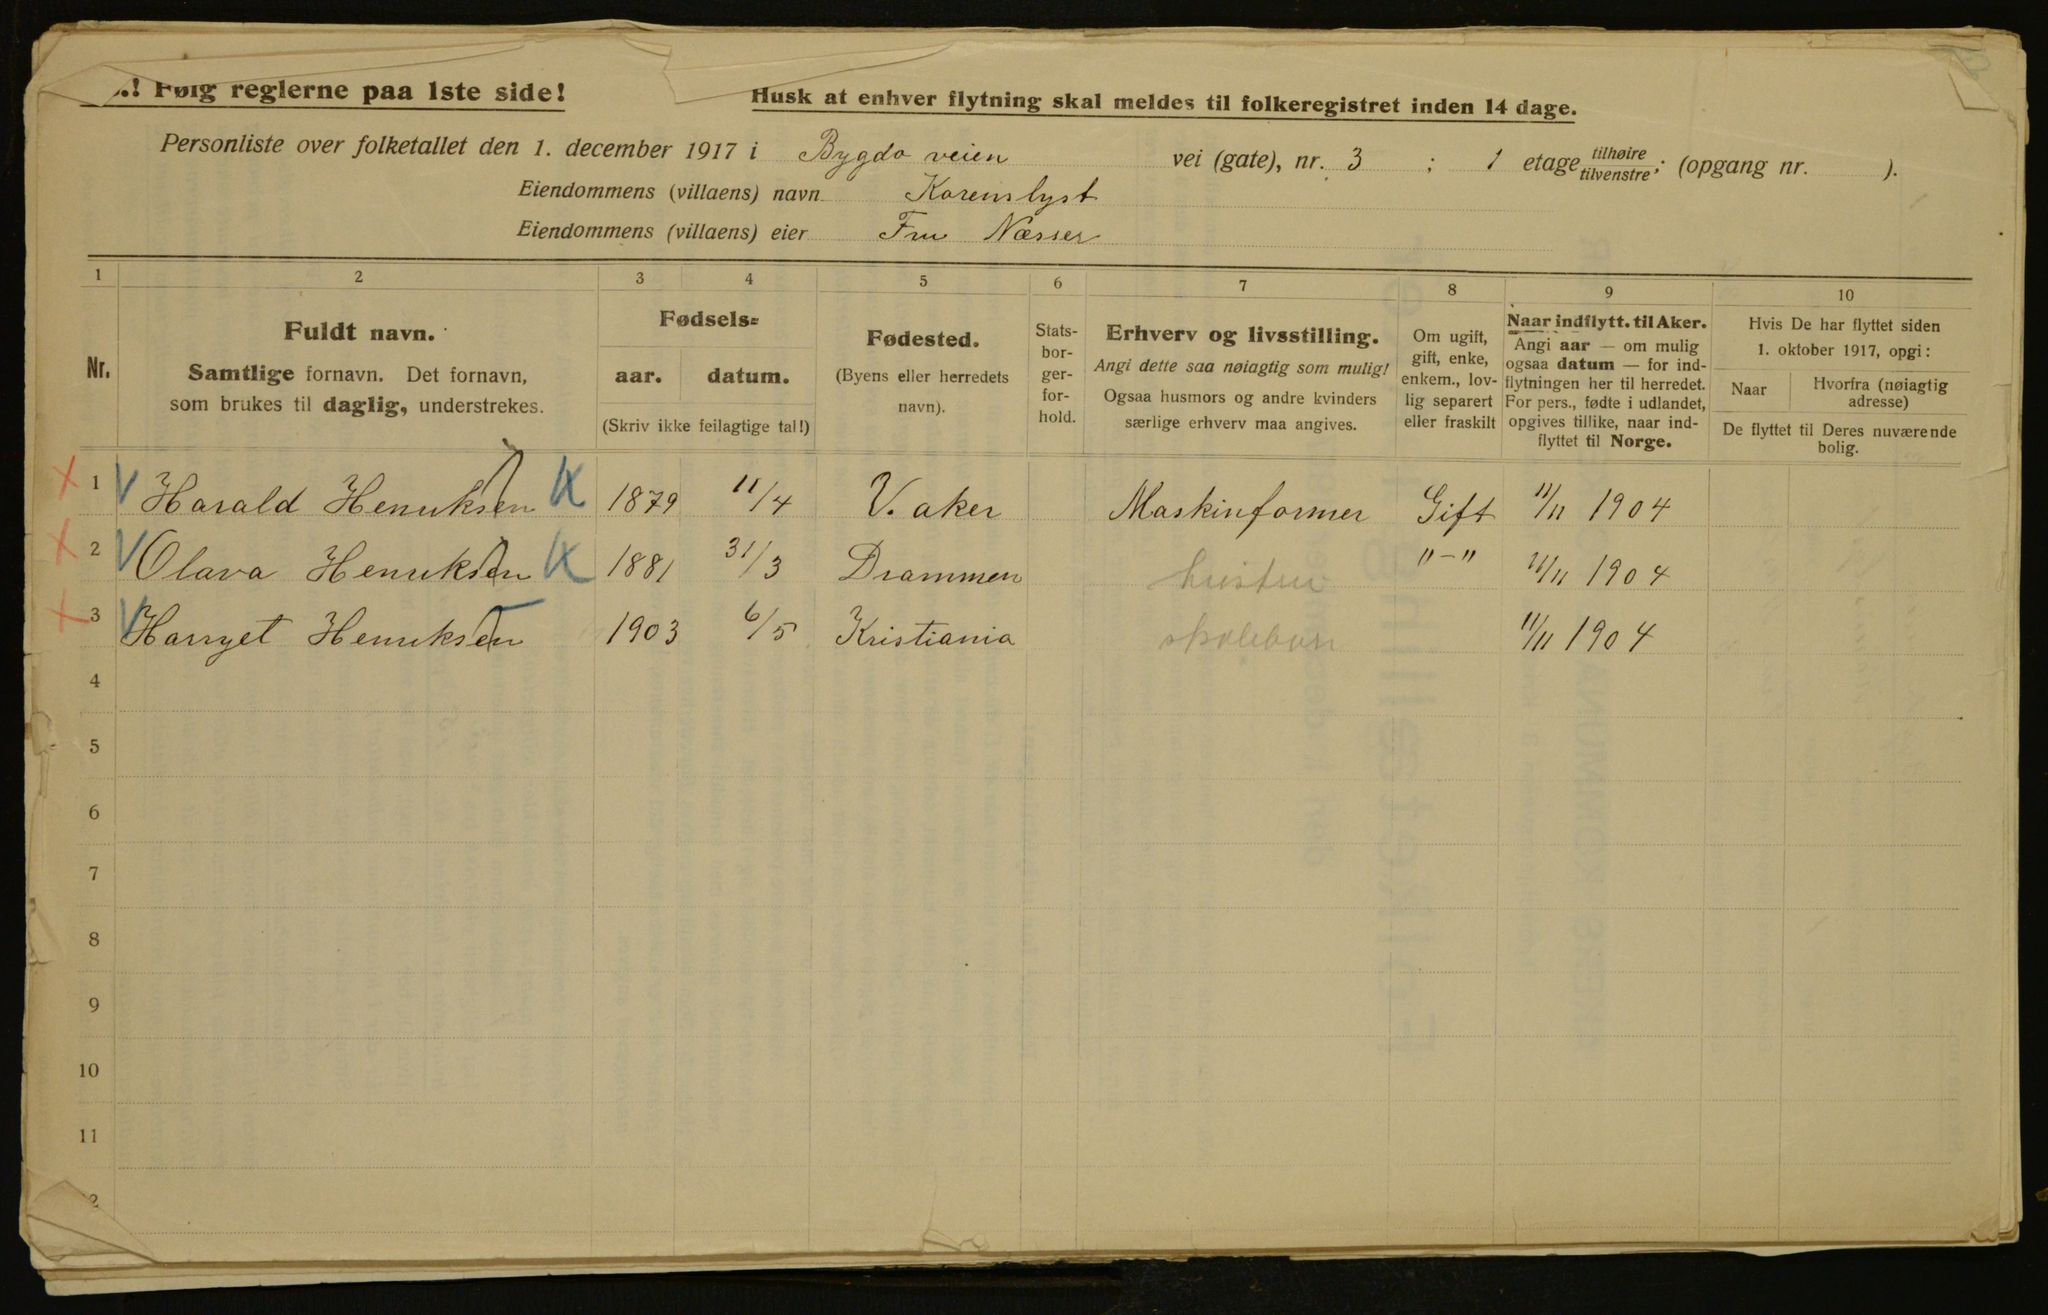 .! Følg reglerne paa 1ste side!
Husk at enhver flytning skal meldes til folkeregistret inden 14 dage.
Personliste over folketallet den 1. december 1917 i Bygdo veien vei (gate), nr. 3 ; 1 etage tilhøire tilvenstre ; (opgang nr. ).
Eiendommens (villaens) navn Karenslyst
Eiendommens (villaens) eier Fru Næsser
1 2 3 4 5 6 7 8 9 10
Nr.
Fuldt navn.
Samtlige fornavn. Det fornavn,
som brukes til daglig, understrekes.
Fødsels-
aar. datum.
(Skriv ikke feilagtige tal!)
Fødested.
(Byens eller herredets
navn).
Stats-
bor-
ger-
for-
hold.
Erhverv og livsstilling.
Angi dette saa nøiagtig som mulig!
Ogsaa husmors og andre kvinders
særlige erhverv maa angives.
Om ugift,
gift, enke,
enkem., lov-
lig separert
eller fraskilt
Naar indflytt. til Aker.
Angi aar — om mulig
ogsaa datum — for ind-
flytningen her til herredet.
For pers., fødte i udlandet,
opgives tillike, naar ind-
flyttet til Norge.
Hvis De har flyttet siden
1. oktober 1917, opgi:
Naar Hvorfra (nøiagtig
adresse)
De flyttet til Deres nuværende
bolig.
1 Harald Henriksen 1879 11/4 V. aker Maskinformer Gift 11/11 1904
2 Olava Henriksen 1881 31/3 Drammen hustru "-" 11/11 1904
3 Harryet Henriksen 1903 6/5 Kristiania skolebarn 11/11 1904
4
5
6
7
8
9
10
11
2